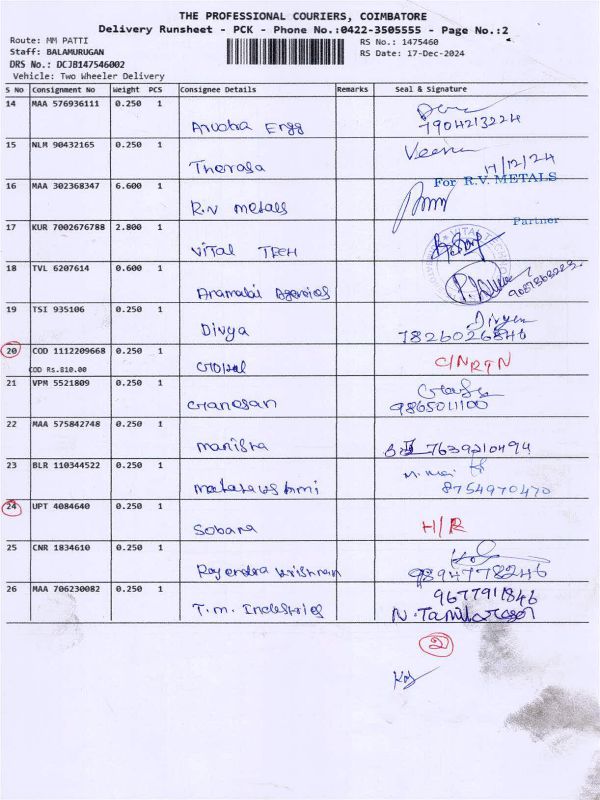 THE PROFESSIONAL COURIERS, COIMBATORE
Delivery Runsheet - PCK - Phone No.:0422-3505555 - Page No.:2
Route: MM PATTI
RS No.: 1475460
Staff: BALAMURUGAN
RS Date: 17-Dec-2024
DRS No.: DCJB147546002
Vehicle: Two Wheeler Delivery
S No Consignment No Weight PCS Consignee Details Remarks Seal & Signature
14 MAA 576936111 0.250 1
Anusha Engg 7904213224
15 NLM 90432165 0.250 1 Veena
Therasa 17/12/24
16 MAA 302368347 6.600 1 For R.V. METALS
R.V metals
Partner
17 KUR 7002676788 2.800 1
VITAL TECH
18 TVL 6207614 0.600 1
Agencies
19 TSI 935106 0.250 1 Divya
Divya 7826026846
20 COD 1112209668 0.250 1 C/N RTN
COD Rs.810.00
21 VPM 5521809 0.250 1
Ganesan 9865011100
22 MAA 575842748 0.250 1
Manisha 7639210494
23 BLR 110344522 0.250 1
8754970470
24 UPT 4084640 0.250 1
Sobana H/R
25 CNR 1834610 0.250 1
Rajendra Krishnan 9894778246
26 MAA 706230082 0.250 1 9677911846
T.M. Industries N. Tamilarasan
2